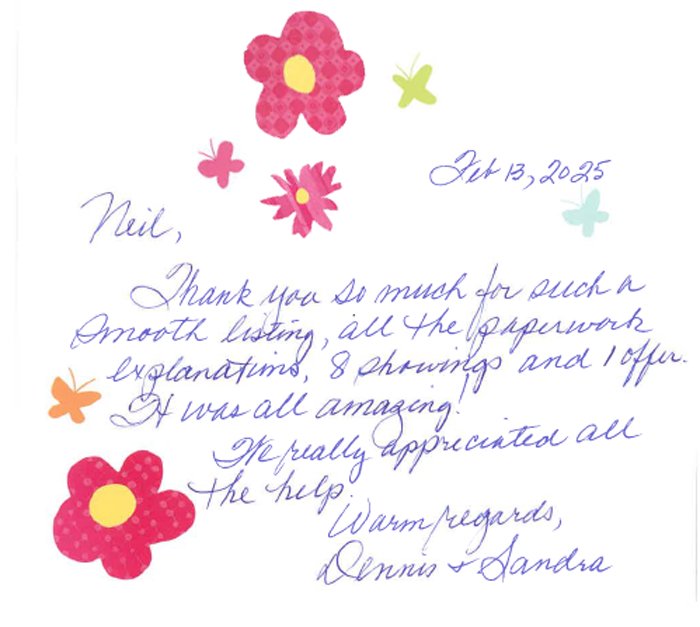 Feb 13, 2025
Neil,
Thank you so much for such a
smooth listing, all the paperwork
explanations, 8 showings and 1 offer.
It was all amazing!
We really appreciated all
the help.
Warm regards,
Dennis + Sandra